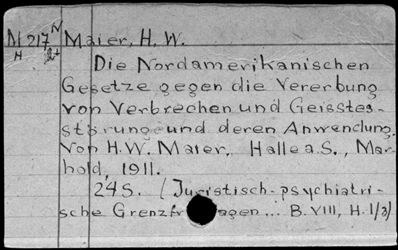 M217N Maier, H. W.
H 2+
Die Nordamerikanischen
Gesetze gegen die Vererbung
von Verbrechen und Geisstes-
störung und deren Anwendung.
Von H.W. Maier. Halle a.S., Mar-
hold, 1911.
24S. (Juristisch-psychiatri-
sche Grenzfragen... B. VIII, H. 1/2)